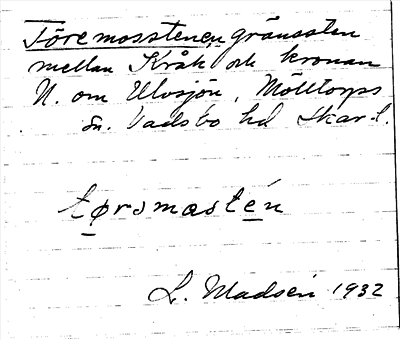 Töremosstenen, gränssten
mellan Kråk och kronan
N. om Ulvsjön, Mölltorps
sn. Vadsbo hd Skar. l.
tørsmastén
L. Madsén 1932